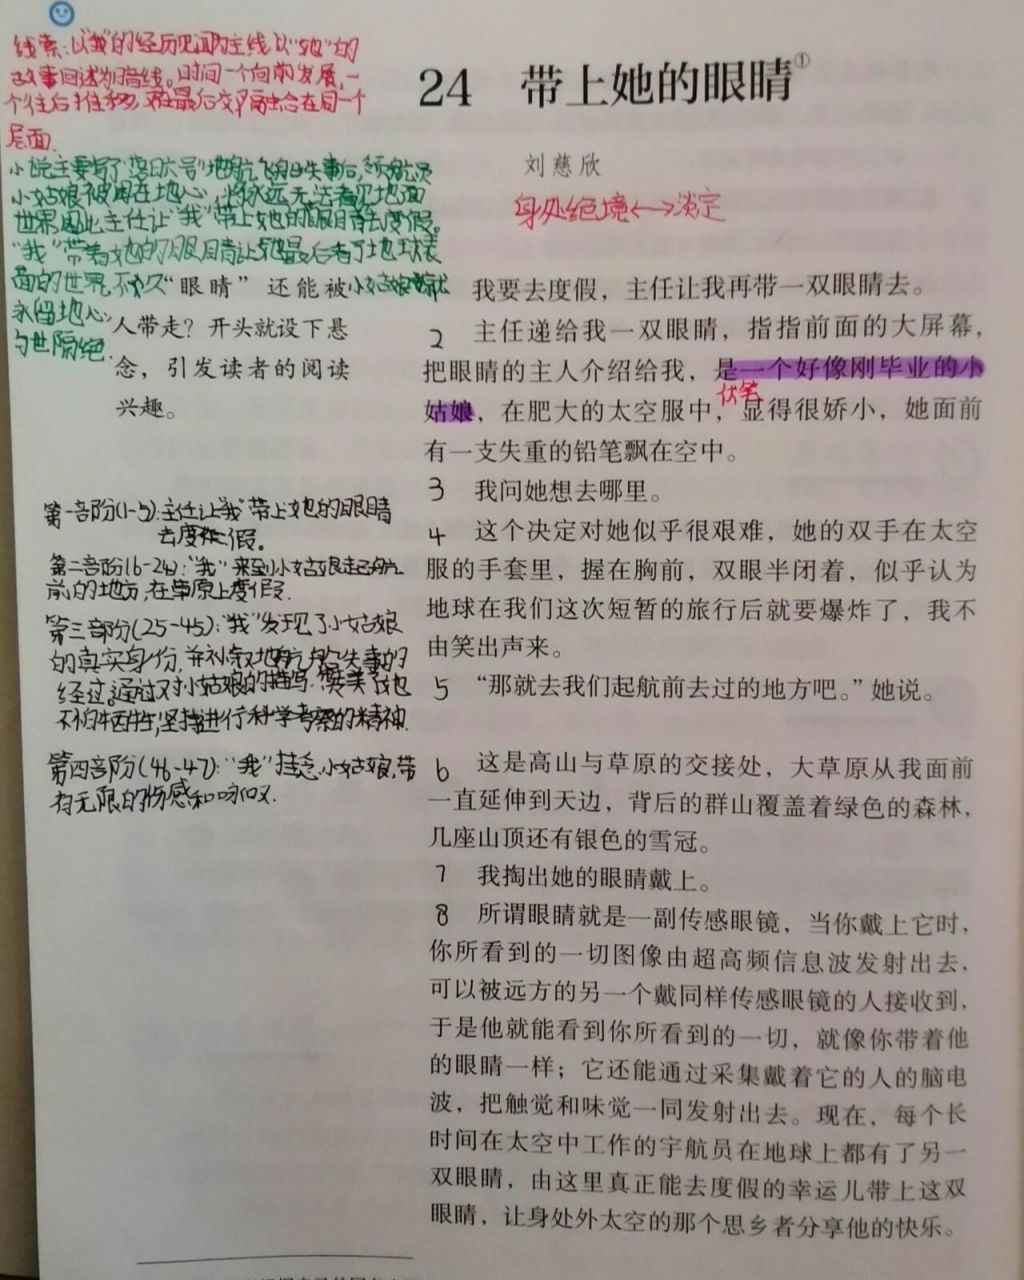 线索:以"我"的经历见闻为主线 以"她"的
故事回述为暗线。时间一个向前发展,一
个往后推移,在最后交融合在同一个
层面.
小说主要写了"落日六号"地航飞船失事后,领航员
小姑娘被困在地心,将永远无法看见地面
世界,因此主任让"我"带上她的眼睛去度假。
"我"带着她的眼睛让她最后看了地球表
面的世界,不久小姑娘就
永留地心,
与世隔绝.
"眼睛"还能被
人带走?开头就设下悬
念,引发读者的阅读
兴趣。
第一部份(1-5):主任让"我"带上她的眼睛
去度假。
第二部份(6-24):"我"来到小姑娘起航
前的地方,在草原上度假.
第三部份(25-45):"我"发现了小姑娘
的真实身份,并补叙地航船失事的
经过。通过对小姑娘的描写,赞美了她
不怕牺牲,坚持进行科学考察的精神.
第四部份(46-47):"我"挂念小姑娘,带
有无限的伤感和
24 带上她的眼睛①
刘慈欣
身处绝境<->淡定
我要去度假,主任让我再带一双眼睛去。
2 主任递给我一双眼睛,指指前面的大屏幕,
把眼睛的主人介绍给我,是一个好像刚毕业的小
伏笔
姑娘,在肥大的太空服中,显得很娇小,她面前
有一支失重的铅笔飘在空中。
3 我问她想去哪里。
4 这个决定对她似乎很艰难,她的双手在太空
服的手套里,握在胸前,双眼半闭着,似乎认为
地球在我们这次短暂的旅行后就要爆炸了,我不
由笑出声来。
5 "那就去我们起航前去过的地方吧。"她说。
6 这是高山与草原的交接处,大草原从我面前
一直延伸到天边,背后的群山覆盖着绿色的森林,
几座山顶还有银色的雪冠。
7 我掏出她的眼睛戴上。
8 所谓眼睛就是一副传感眼镜,当你戴上它时,
你所看到的一切图像由超高频信息波发射出去,
可以被远方的另一个戴同样传感眼镜的人接收到,
于是他就能看到你所看到的一切,就像你带着他
的眼睛一样;它还能通过采集戴着它的人的脑电
波,把触觉和味觉一同发射出去。现在,每个长
时间在太空中工作的宇航员在地球上都有了另一
双眼睛,由这里真正能去度假的幸运儿带上这双
眼睛,让身处外太空的那个思乡者分享他的快乐。